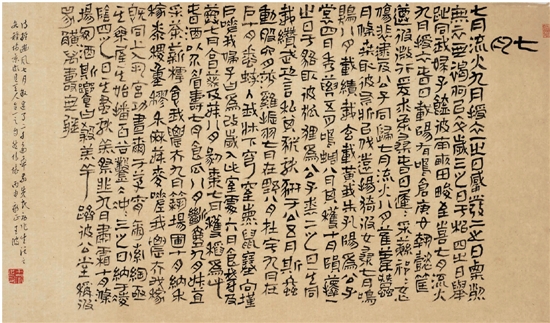 七月
七月流火九月授衣一之日觱發二之日栗烈
無衣無褐何以卒歲三之日于耜四之日舉
趾同我婦子饁彼南畝田畯至喜七月流火
九月授衣春日載陽有鳴倉庚女執懿筐
遵彼微行爰求柔桑春日遲遲采蘩祁祁女心
傷悲殆及公子同歸七月流火八月萑葦蠶
月條桑取彼斧斨以伐遠揚猗彼女桑七月鳴
鵙八月載績載玄載黃我朱孔陽為公子
裳四月秀葽五月鳴蜩八月其穫十月隕蘀一之
日于貉取彼狐狸為公子裘二之日其同
載纘武功言私其豵獻豜于公五月斯螽
動股六月莎雞振羽七月在野八月在宇九月在
戶十月蟋蟀入我牀下穹窒熏鼠塞向墐
戶嗟我婦子曰為改歲入此室處六月食鬱及
薁七月亨葵及菽八月剝棗十月穫稻為此
春酒以介眉壽七月食瓜八月斷壺九月叔苴
采荼薪樗食我農夫九月築場圃十月納禾
稼黍稷重穋禾麻菽麥嗟我農夫我稼
既同上入執宮功晝爾于茅宵爾索綯亟
其乘屋其始播百穀二之日鑿冰沖沖三之日納于凌
陰四之日其蚤獻羔祭韭九月肅霜十月滌
場朋酒斯饗曰殺羔羊躋彼公堂稱彼
兕觥萬壽無疆
詩經豳風七月